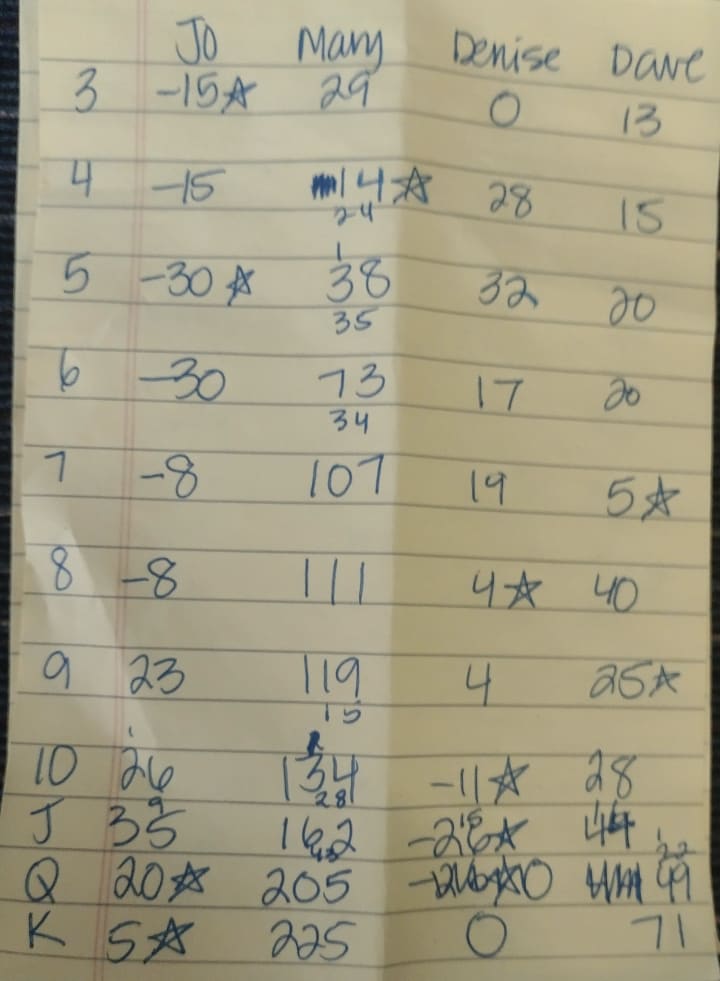 Jo Mary Denise Dave
3 -15☆ 29 0 13
4 -15 14☆ 28 15
24
1
5 -30☆ 38 32 20
35
6 -30 73 17 20
34
7 -8 107 19 5☆
8 -8 111 4☆ 40
9 23 119 4 25☆
15
1
10 26 134 -11☆ 28
9 28 15
J 35 162 -26☆ 44
1 22
Q 20☆ 205 0 49
K 5☆ 225 0 71